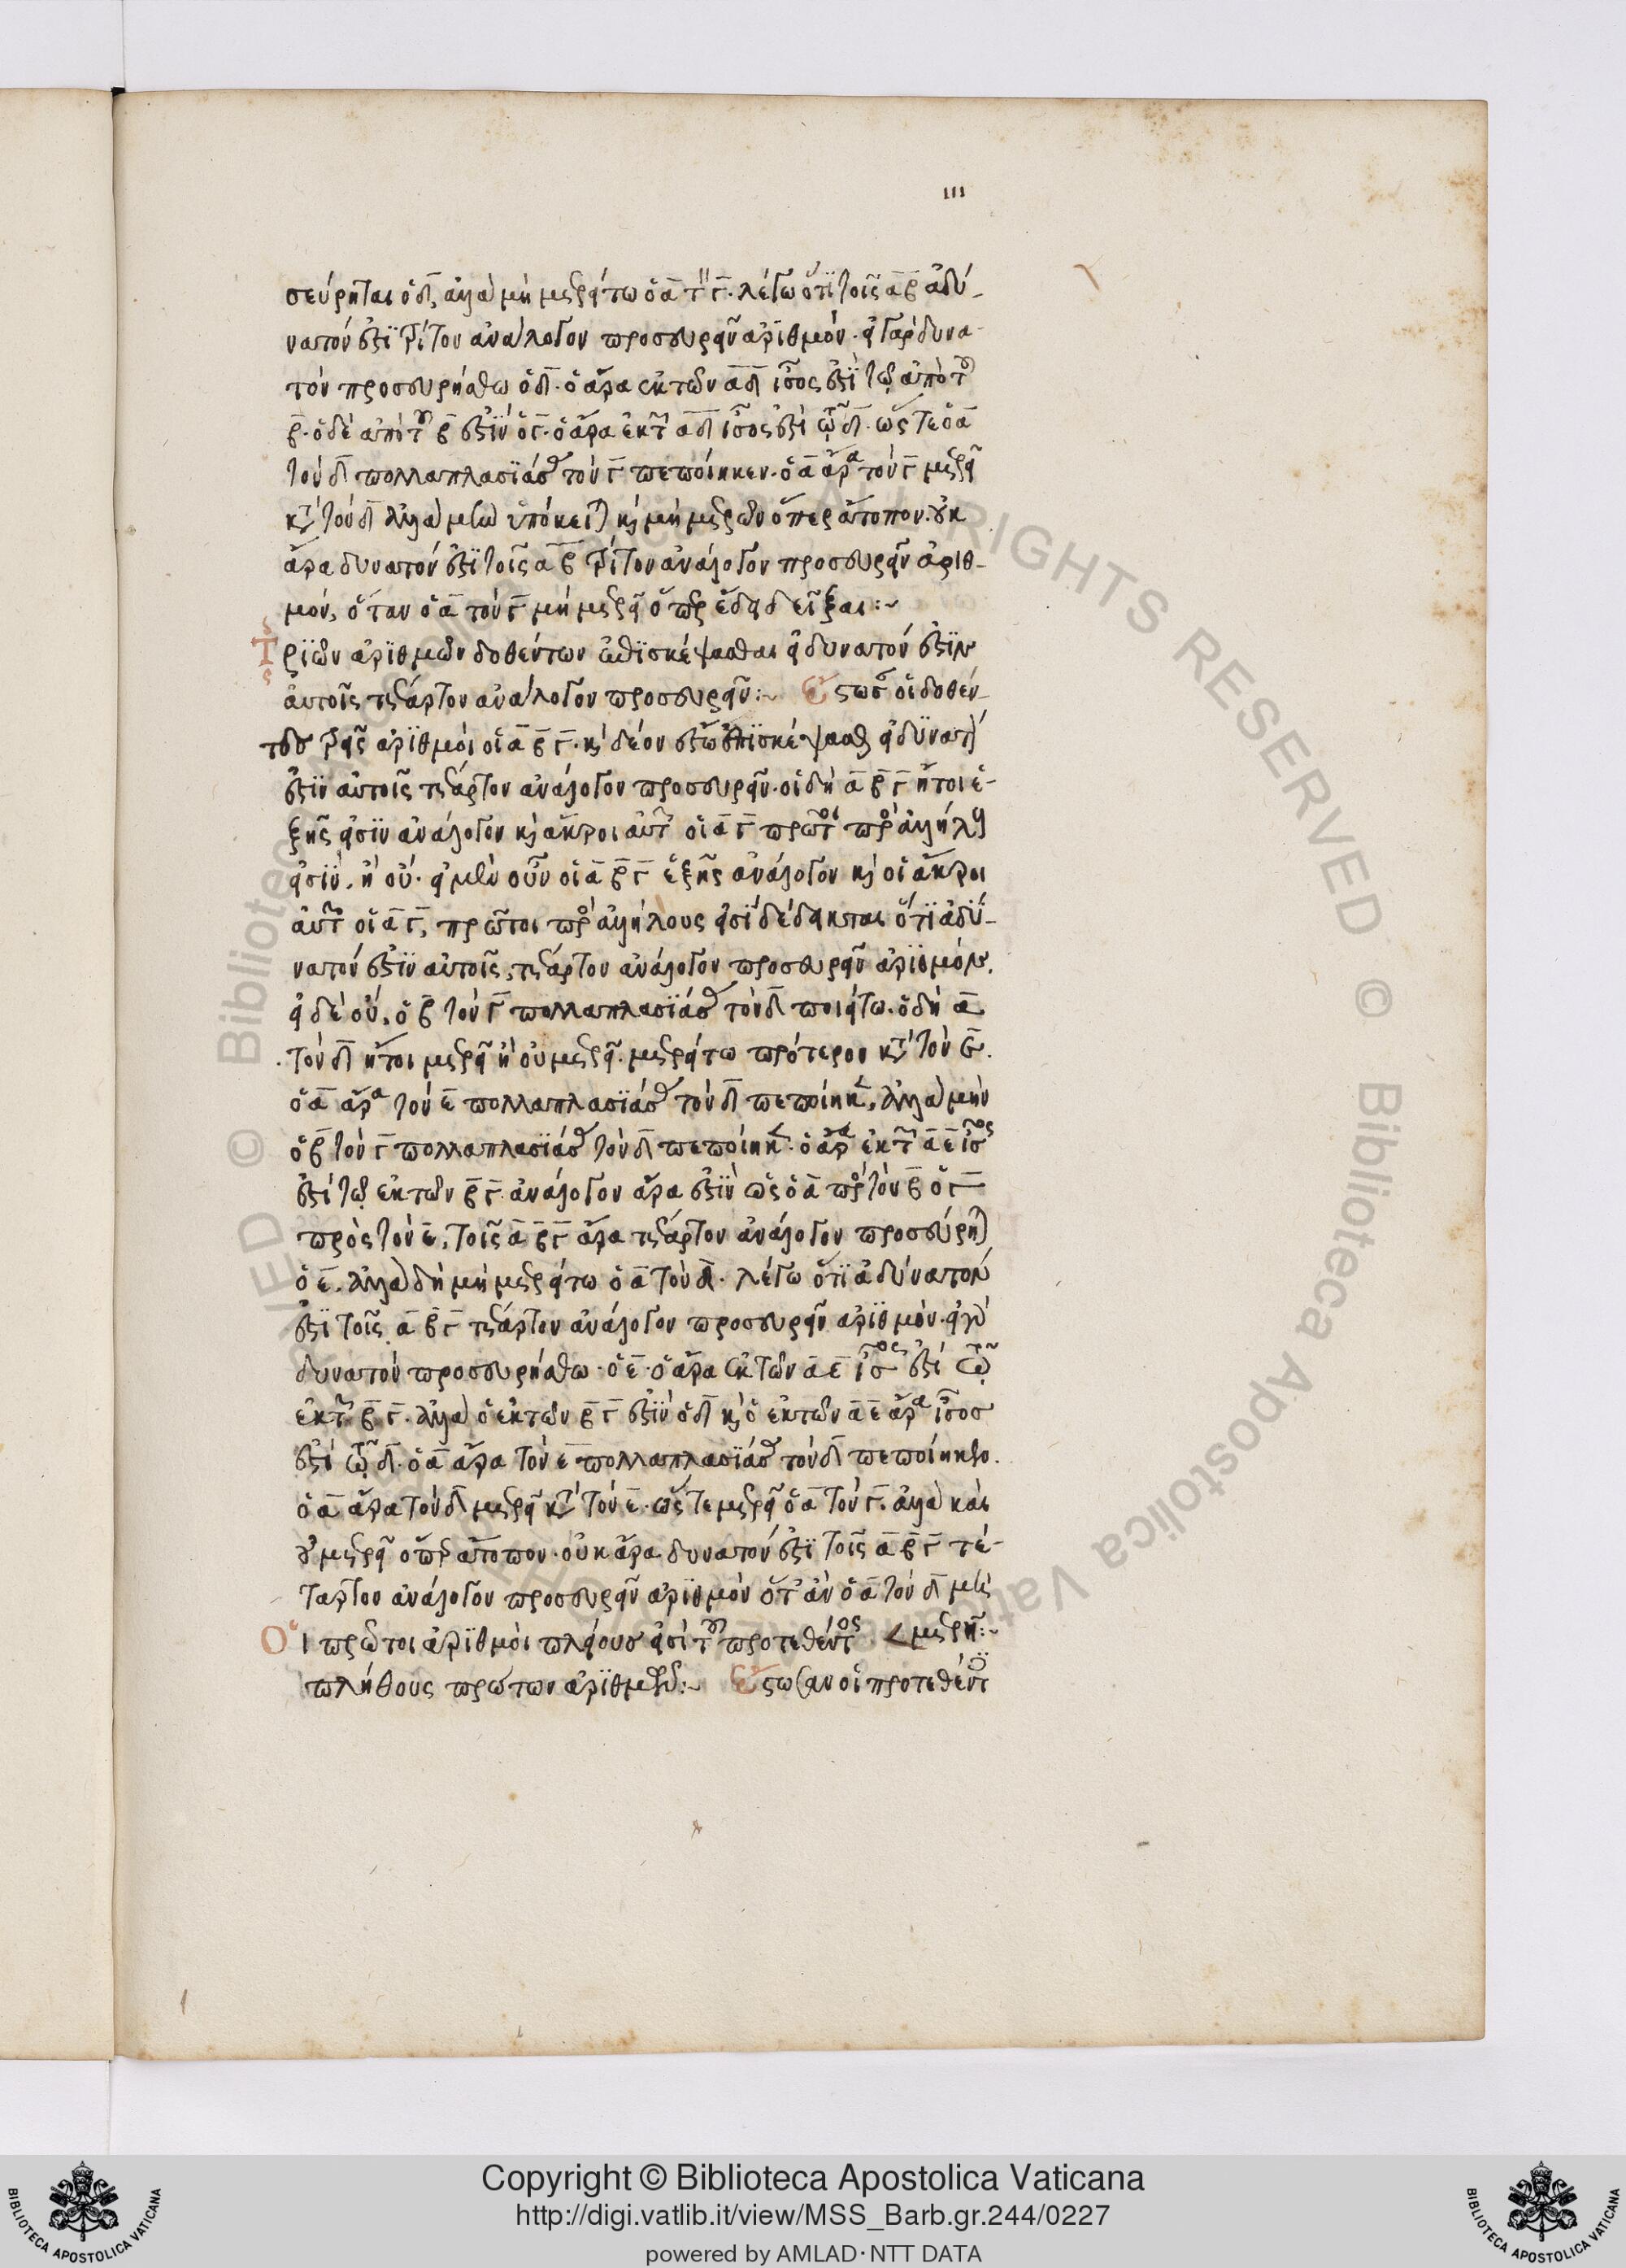 111
σεύρηται ὁ δ, ἀλλὰ μὴ μετρείτω ὁ α τὸν γ. λέγω ὅτι τοῖς α β ἀδύ-
νατόν ἐστι τρίτον ἀνάλογον προσευρεῖν ἀριθμόν. εἰ γὰρ δυνα-
τὸν προσευρήσθω ὁ δ. ὁ ἄρα ἐκ τῶν α δ ἴσος ἐστὶ τῷ ἀπὸ τοῦ
β. ὁ δὲ ἀπὸ τοῦ β ἐστὶν ὁ γ. ὁ ἄρα ἐκ τῶν α δ ἴσος ἐστὶ τῷ γ. ὥστε ὁ α
τὸν δ πολλαπλασιάσας τὸν γ πεποίηκεν. ὁ α ἄρα τὸν γ μετρεῖ
κατὰ τὸν δ ἀλλὰ μὴν ὑπόκειται καὶ μὴ μετρῶν ὅπερ ἄτοπον. οὐκ
ἄρα δυνατόν ἐστι τοῖς α β τρίτον ἀνάλογον προσευρεῖν ἀριθ-
μόν, ὅταν ὁ α τὸν γ μὴ μετρεῖ ὅπερ ἔδει δεῖξαι:~
Τριῶν ἀριθμῶν δοθέντων ἐπισκέψασθαι εἰ δυνατόν ἐστιν
αὐτοῖς τέταρτον ἀνάλογον προσευρεῖν:~ Ἔστωσαν οἱ δοθέν-
τες τρεῖς ἀριθμοὶ οἱ α β γ. καὶ δέον ἔστω ἐπισκέψασθαι εἰ δυνατόν
ἐστιν αὐτοῖς τέταρτον ἀνάλογον προσευρεῖν. οἱ δὴ α β γ ἤτοι ἑ-
ξῆς εἰσὶν ἀνάλογον καὶ ἄκροι αὐτῶν οἱ α γ πρῶτοι πρὸς ἀλλήλους
εἰσίν, ἢ οὔ. εἰ μὲν οὖν οἱ α β γ ἑξῆς ἀνάλογον καὶ οἱ ἄκροι
αὐτῶν οἱ α γ, πρῶτοι πρὸς ἀλλήλους εἰσὶ δέδεικται ὅτι ἀδύ-
νατόν ἐστιν αὐτοῖς, τέταρτον ἀνάλογον προσευρεῖν ἀριθμόν.
εἰ δὲ οὔ, ὁ β τὸν γ πολλαπλασιάσας τὸν δ ποιείτω. ὁ δὴ α
τὸν δ ἤτοι μετρεῖ ἢ οὐ μετρεῖ. μετρείτω πρότερον κατὰ τὸν ε.
ὁ α ἄρα τὸν ε πολλαπλασιάσας τὸν δ πεποίηκεν, ἀλλὰ μὴν
ὁ β τὸν γ πολλαπλασιάσας τὸν δ πεποίηκεν. ὁ ἄρα ἐκ τῶν α ε ἴσος
ἐστὶ τῷ ἐκ τῶν β γ. ἀνάλογον ἄρα ἐστὶν ὡς ὁ α πρὸς τὸν β ὁ γ
πρὸς τὸν ε, τοῖς α β γ ἄρα τέταρτον ἀνάλογον προσεύρηται
ὁ ε. ἀλλὰ δὴ μὴ μετρείτω ὁ α τὸν δ. λέγω ὅτι ἀδύνατόν
ἐστι τοῖς α β γ τέταρτον ἀνάλογον προσευρεῖν ἀριθμόν. εἰ γὰρ
δυνατὸν προσευρήσθω. ὁ ε. ὁ ἄρα ἐκ τῶν α ε ἴσος ἐστὶ τῷ
ἐκ τῶν β γ. ἀλλὰ ὁ ἐκ τῶν β γ ἐστὶν ὁ δ καὶ ὁ ἐκ τῶν α ε ἄρα ἴσος
ἐστὶ τῷ δ. ὁ α ἄρα τὸν ε πολλαπλασιάσας τὸν δ πεποίηκεν.
ὁ α ἄρα τὸν δ μετρεῖ κατὰ τὸν ε. ὥστε μετρεῖ ὁ α τὸν γ. ἀλλὰ καὶ
οὐ μετρεῖ ὅπερ ἄτοπον. οὐκ ἄρα δυνατόν ἐστι τοῖς α β γ τέ-
ταρτον ἀνάλογον προσευρεῖν ἀριθμὸν ὅτ' ἂν ὁ α τὸν δ μὴ
Οἱ πρῶτοι ἀριθμοὶ πλείους εἰσὶ τοῦ προτεθέντος < μετρῇ:~
πλήθους πρώτων ἀριθμῶν:~ Ἔστωσαν οἱ προτεθέντες
ALL RIGHTS RESERVED © Biblioteca Apostolica Vaticana
© Biblioteca Apostolica Vaticana
Copyright © Biblioteca Apostolica Vaticana
http://digi.vatlib.it/view/MSS_Barb.gr.244/0227
powered by AMLAD·NTT DATA
BIBLIOTECA APOSTOLICA VATICANA
BIBLIOTECA APOSTOLICA VATICANA